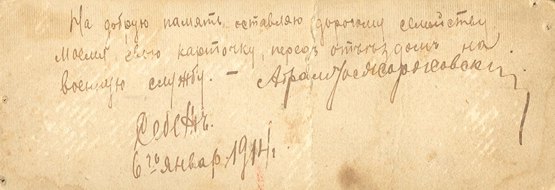 На добрую память оставляю дорогому семейству
моему свою карточку, перед отъездомъ на
военную службу. – Абрам
Себежъ.
6го январ. 1914г.